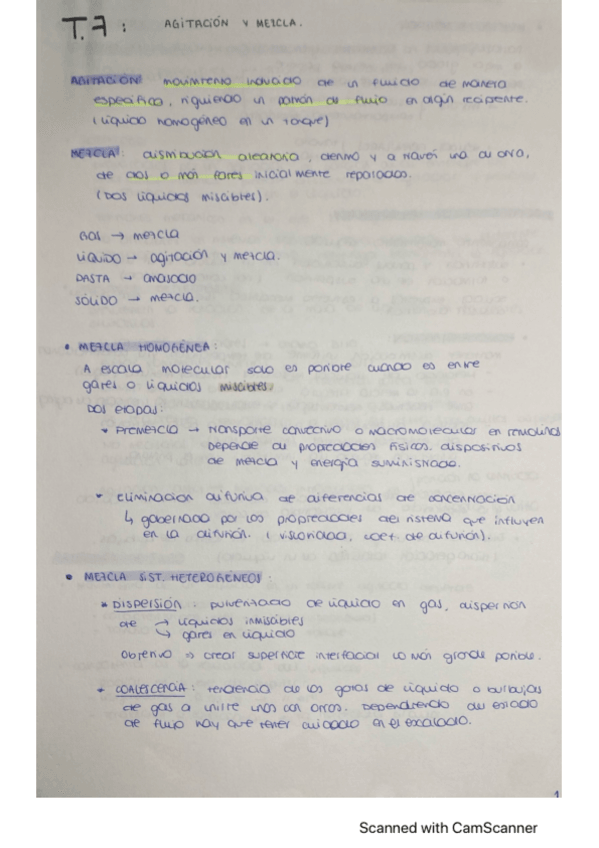 T.7: AGITACIÓN Y MEZCLA.
AGITACIÓN: movimiento inducido de un fluido de manera
específica, siguiendo un patrón de flujo en algún recipiente.
(líquido homogéneo en un tanque)
MEZCLA: distribución aleatoria, dentro y a través una de otra,
de dos o más fases inicialmente separadas.
(Dos líquidos miscibles).
GAS → mezcla
LÍQUIDO → agitación y mezcla.
PASTA → amasado
SÓLIDO → mezcla.
• MEZCLA HOMOGÉNEA:
A escala molecular solo es posible cuando es entre
gases o líquidos miscibles.
Dos etapas:
Premezcla → Transporte convectivo o macromolecular en remolinos
Depende de propiedades físicas, dispositivos
de mezcla y energía suministrada.
Eliminación difusiva de diferencias de concentración
↳ gobernado por las propiedades del sistema que influyen
en la difusión. (viscosidad, coef. difusión).
• MEZCLA SIST. HETEROGÉNEOS:
DISPERSIÓN: pulverizado de líquido en gas, dispersión
de → líquidos inmiscibles
↳ gases en líquido
Objetivo ⇒ crear superficie interfacial lo más grande posible.
COALESCENCIA: tendencia de las gotas de líquido o burbujas
de gas a unirse unas con otras. Dependiendo del estado
de flujo hay que tener cuidado en el escalado.
1
Scanned with CamScanner